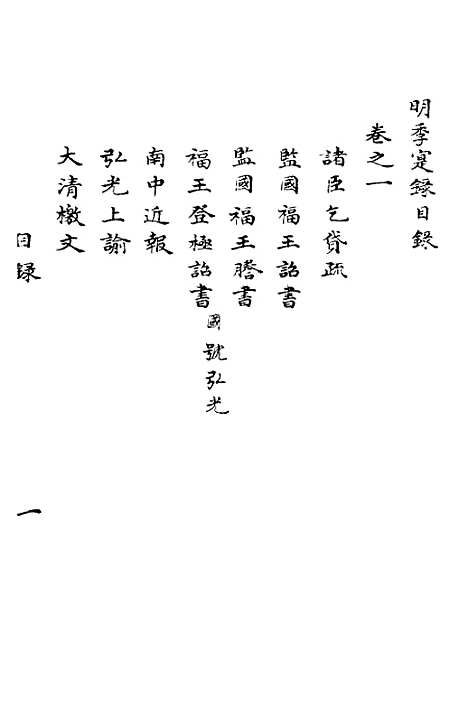 明季寔録目録
卷之一
諸臣乞貸疏
監國福王詔書
監國福王謄書
福王登極詔書國號弘光
南中近報
弘光上諭
大清檄文
目録
一